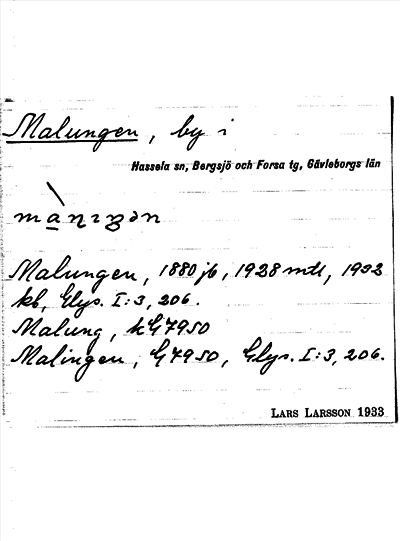 Malungen, by i
Hassela sn, Bergsjö och Forsa tg, Gävleborgs län
Malungen, 1880 jb, 1928 mtl, 1932
kb, Glys. I:3, 206.
Malung, k G7950
Malingen, G7950, Glys. I:3, 206.
LARS LARSSON 1933